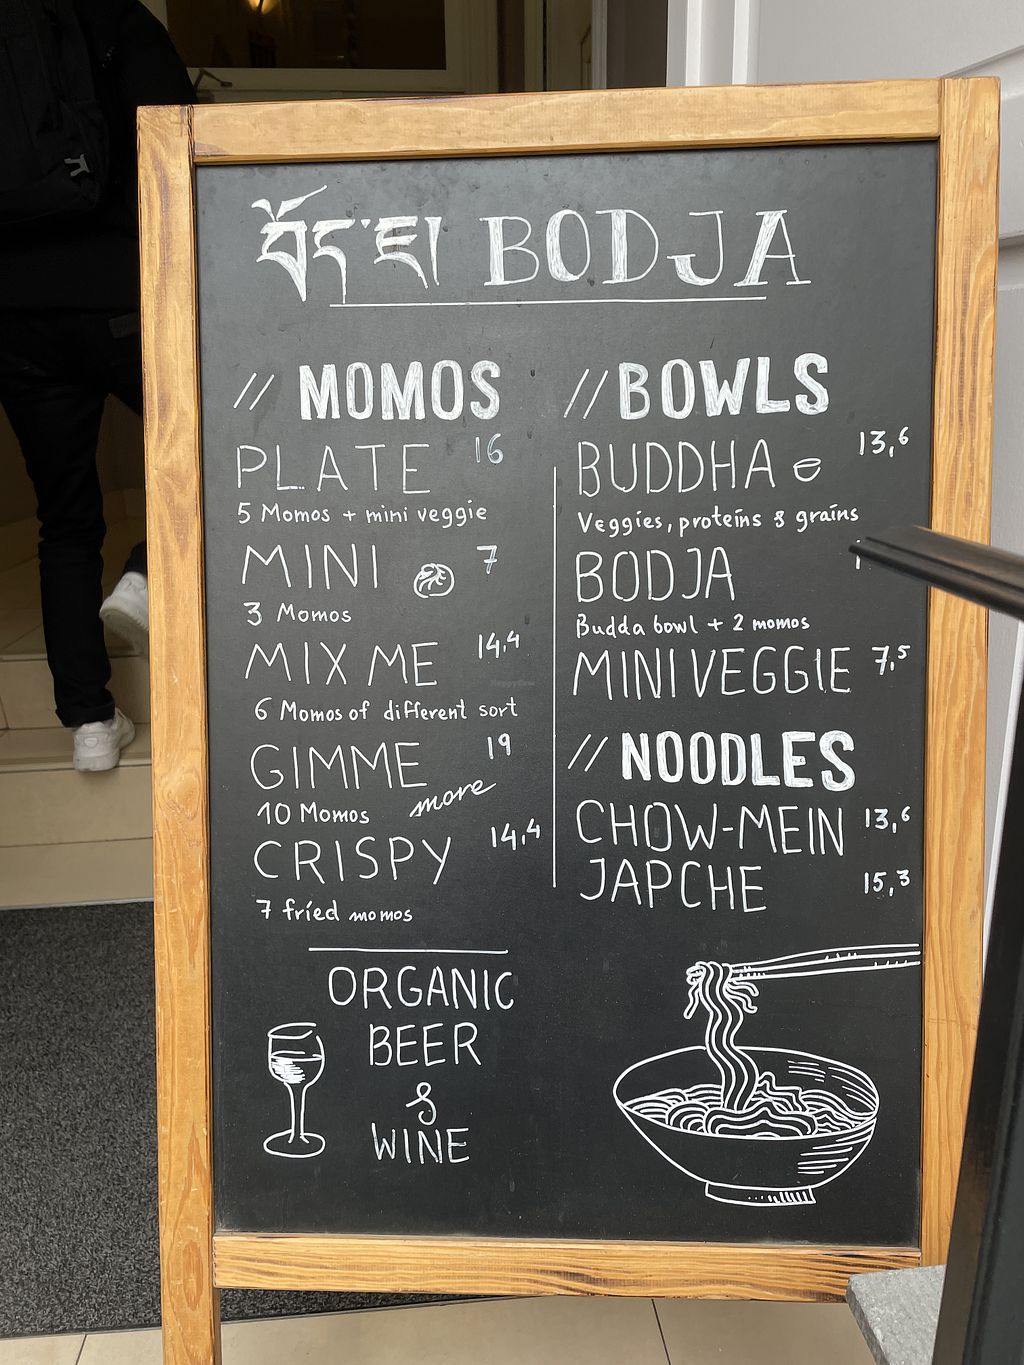 བོད་ཇ། BODJA
// MOMOS
PLATE 16
5 Momos + mini veggie
MINI 7
3 Momos
MIX ME 14,4
6 Momos of different sort
GIMME 19
more
10 Momos
CRISPY 14,4
7 fried momos
ORGANIC
BEER
&
WINE
// BOWLS
BUDDHA 13,6
Veggies, proteins & grains
BODJA
Budda bowl + 2 momos
MINI VEGGIE 7,5
// NOODLES
CHOW-MEIN 13,6
JAPCHE 15,3